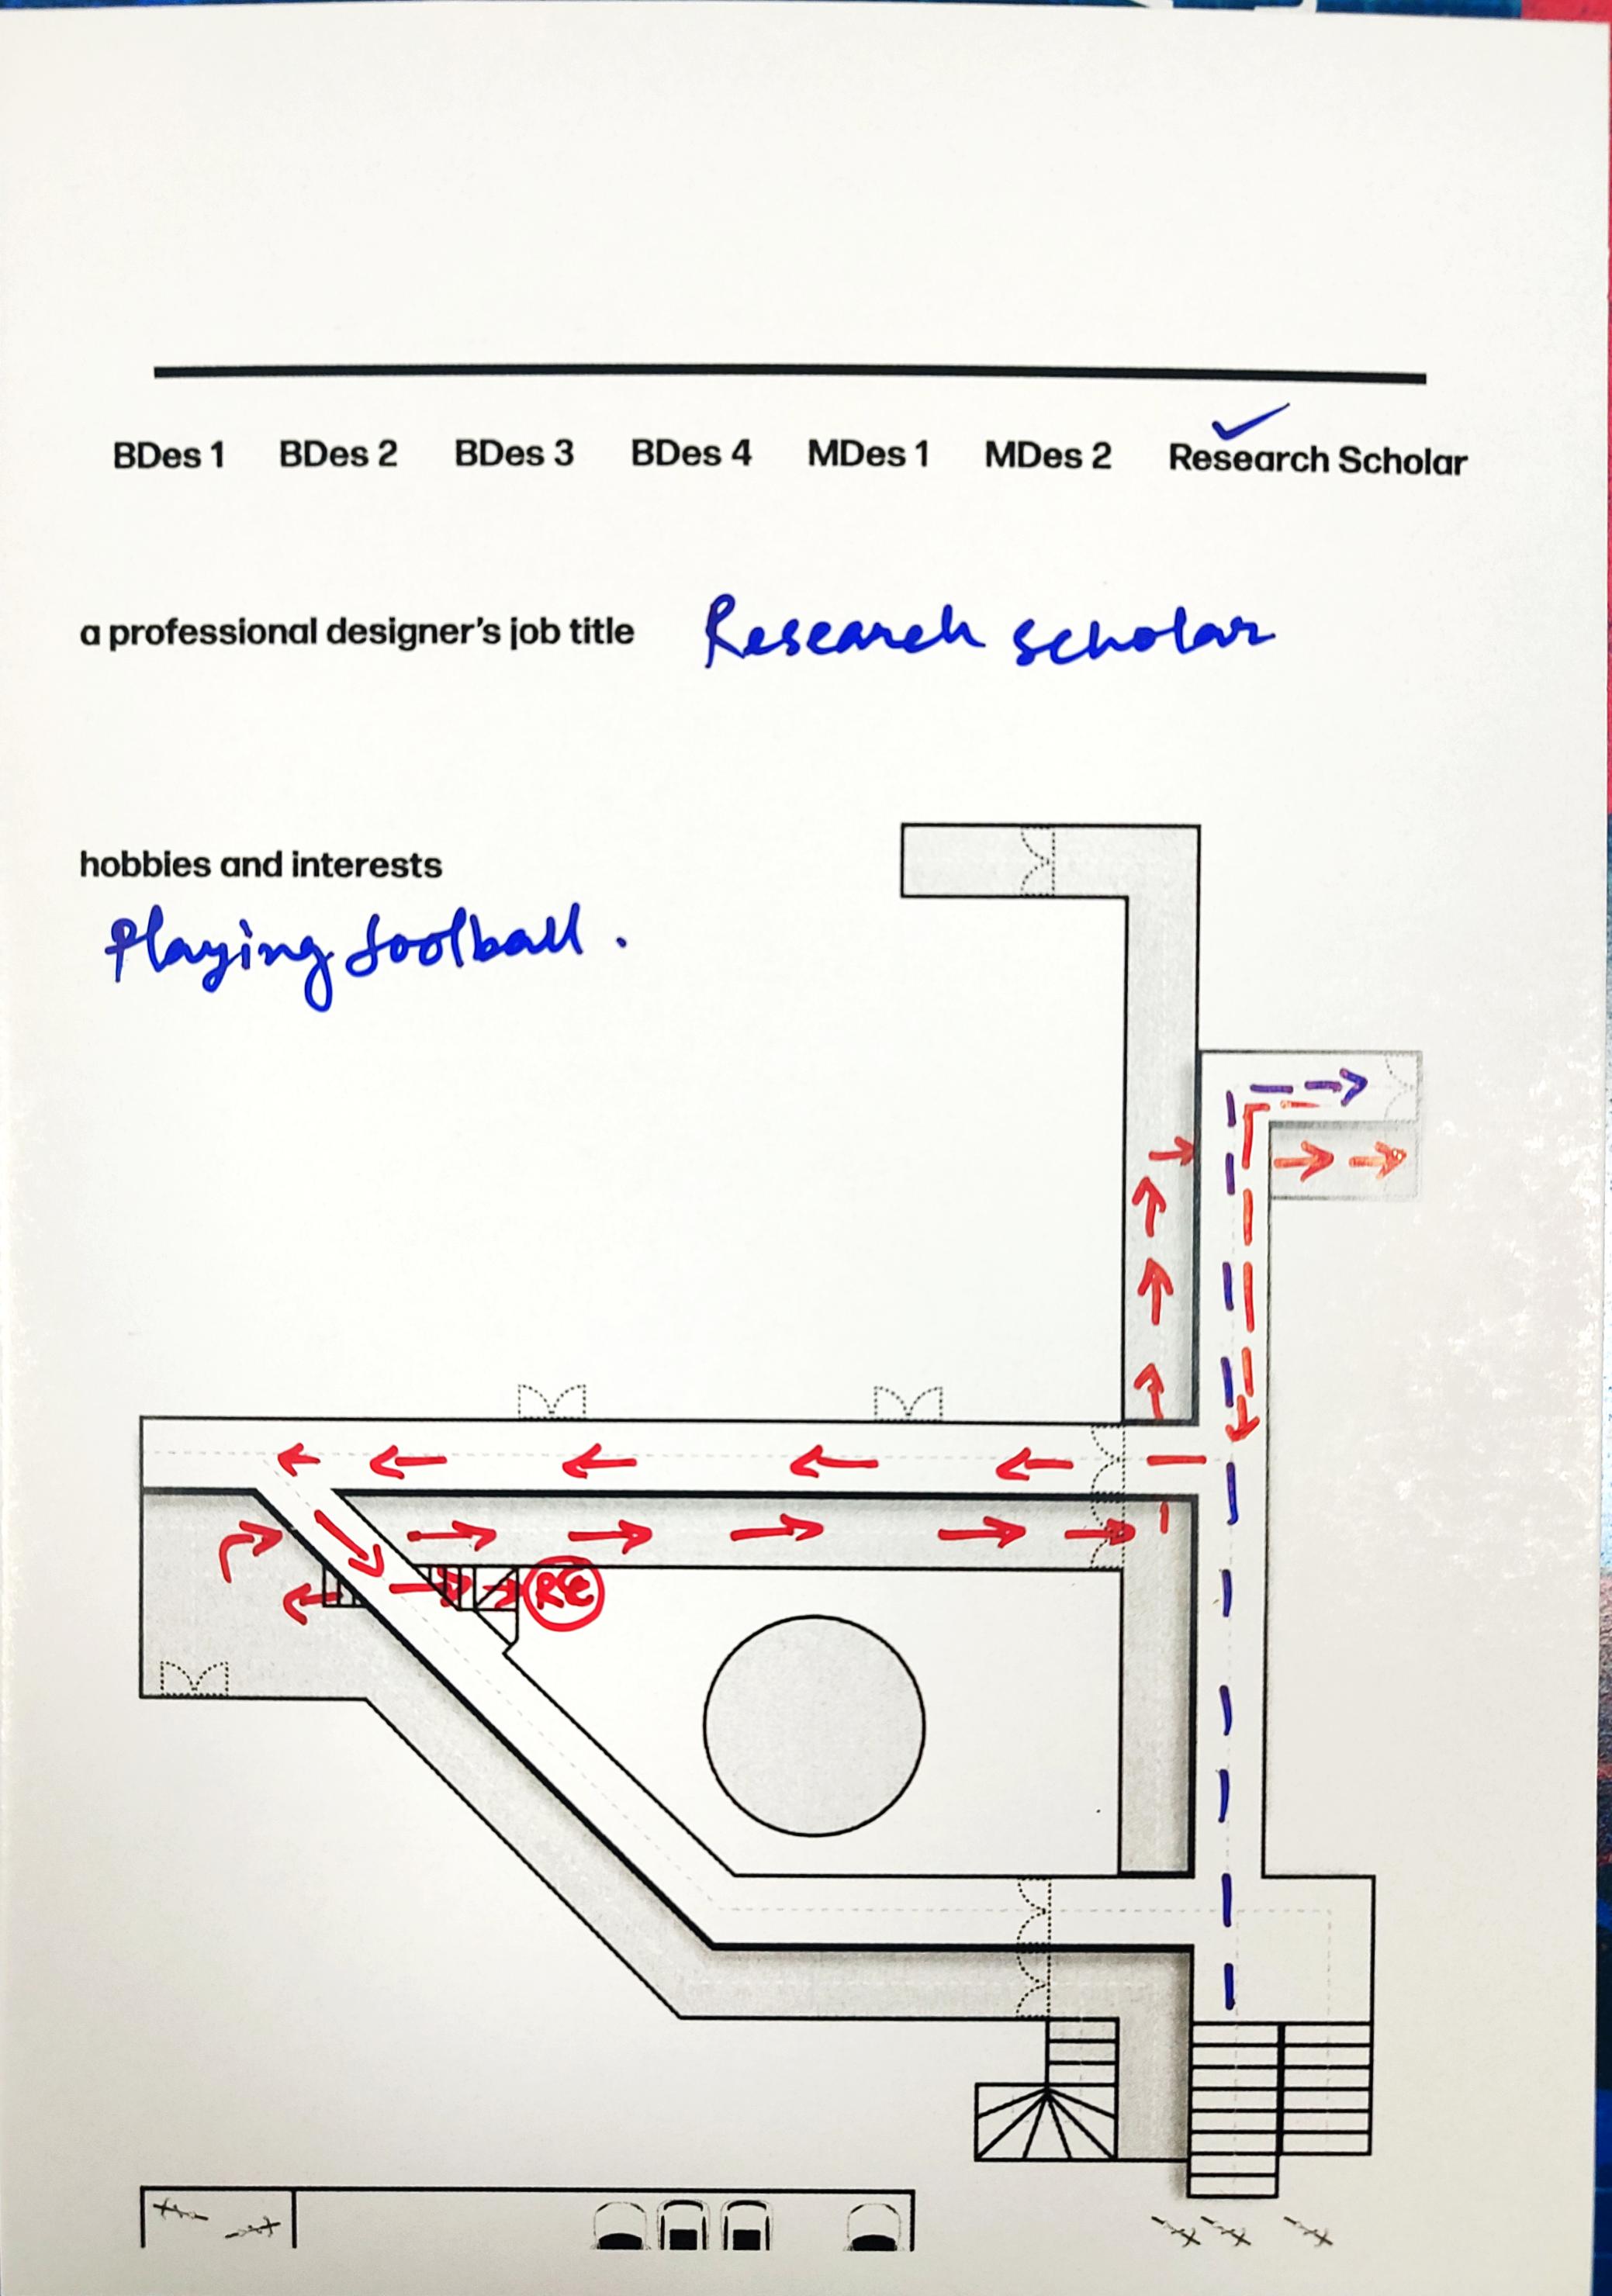 BDes 1 BDes 2 BDes 3 BDes 4 MDes 1 MDes 2 Research Scholar
a professional designer's job title Research scholar
hobbies and interests
Playing football.
RE